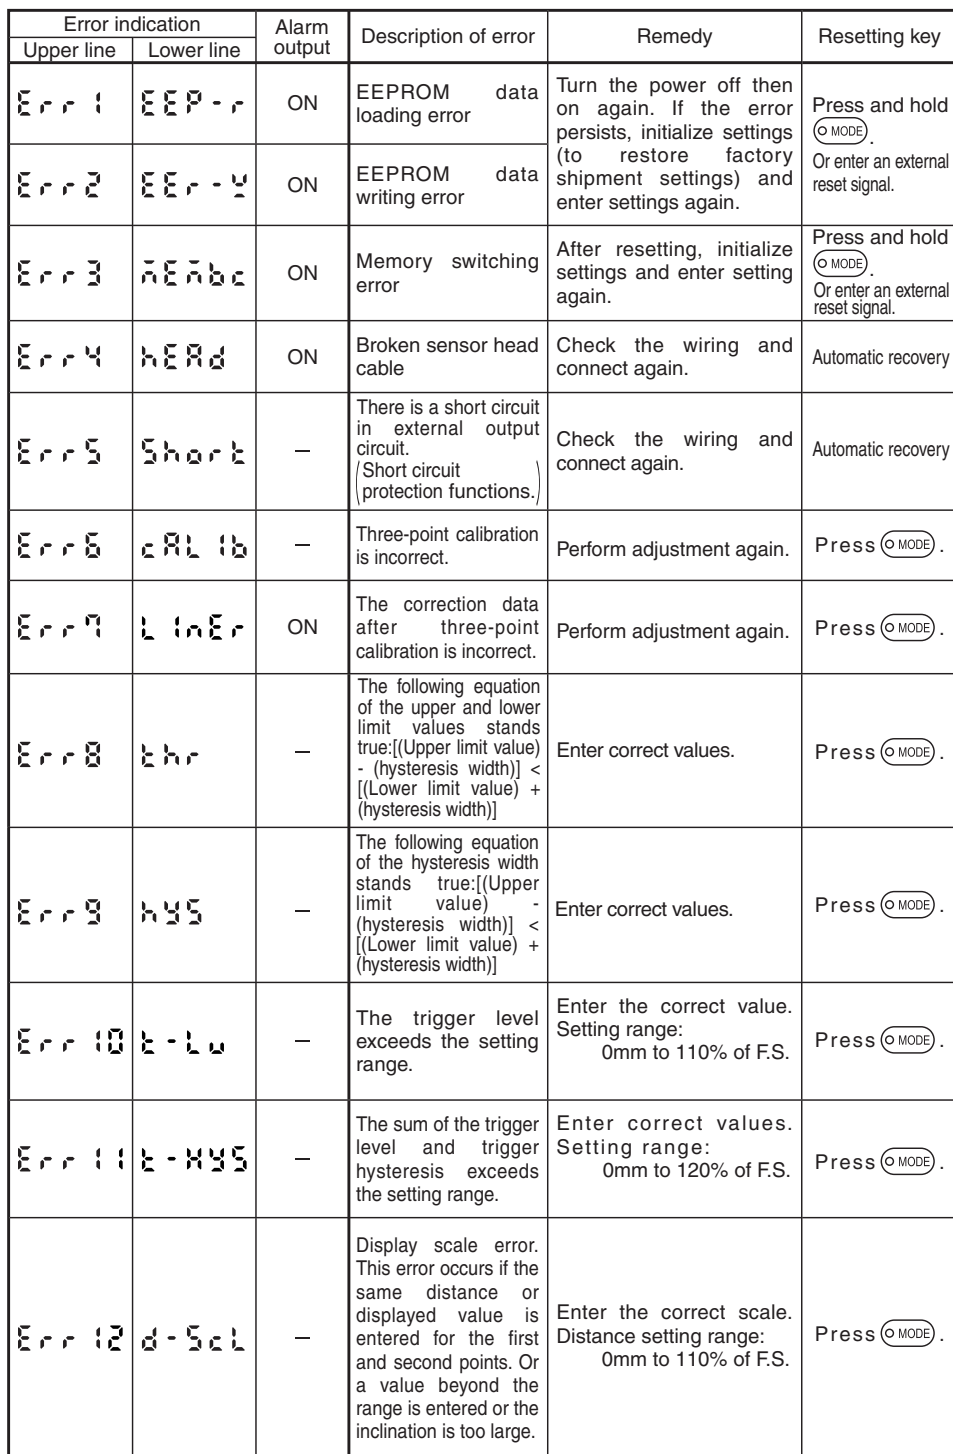 Error indication
Alarm output
Description of error
Remedy
Resetting key
Upper line
Lower line
Err 1
EEP-r
ON
EEPROM data
loading error
Turn the power off then
on again. If the error
persists, initialize settings
(to restore factory
shipment settings) and
enter settings again.
Press and hold
MODE.
Or enter an external
reset signal.
Err2
EEr-Y
ON
EEPROM data
writing error
Err3
ON
Memory switching
error
After resetting, initialize
settings and enter setting
again.
Press and hold
MODE.
Or enter an external
reset signal.
Err4
hEAd
ON
Broken sensor head
cable
Check the wiring and
connect again.
Automatic recovery
Err5
Short
–
There is a short circuit
in external output
circuit.
(Short circuit
protection functions.)
Check the wiring and
connect again.
Automatic recovery
Err6
cALib
–
Three-point calibration
is incorrect.
Perform adjustment again.
Press MODE.
Err7
LinEr
ON
The correction data
after three-point
calibration is incorrect.
Perform adjustment again.
Press MODE.
Err8
thr
–
The following equation
of the upper and lower
limit values stands
true:[(Upper limit value)
- (hysteresis width)] <
[(Lower limit value) +
(hysteresis width)]
Enter correct values.
Press MODE.
Err9
hYS
–
The following equation
of the hysteresis width
stands true:[(Upper
limit value) -
(hysteresis width)] <
[(Lower limit value) +
(hysteresis width)]
Enter correct values.
Press MODE.
Err 10
t-Lu
–
The trigger level
exceeds the setting
range.
Enter the correct value.
Setting range:
0mm to 110% of F.S.
Press MODE.
Err 11
t-HYS
–
The sum of the trigger
level and trigger
hysteresis exceeds
the setting range.
Enter correct values.
Setting range:
0mm to 120% of F.S.
Press MODE.
Err 12
d-ScL
–
Display scale error.
This error occurs if the
same distance or
displayed value is
entered for the first
and second points. Or
a value beyond the
range is entered or the
inclination is too large.
Enter the correct scale.
Distance setting range:
0mm to 110% of F.S.
Press MODE.